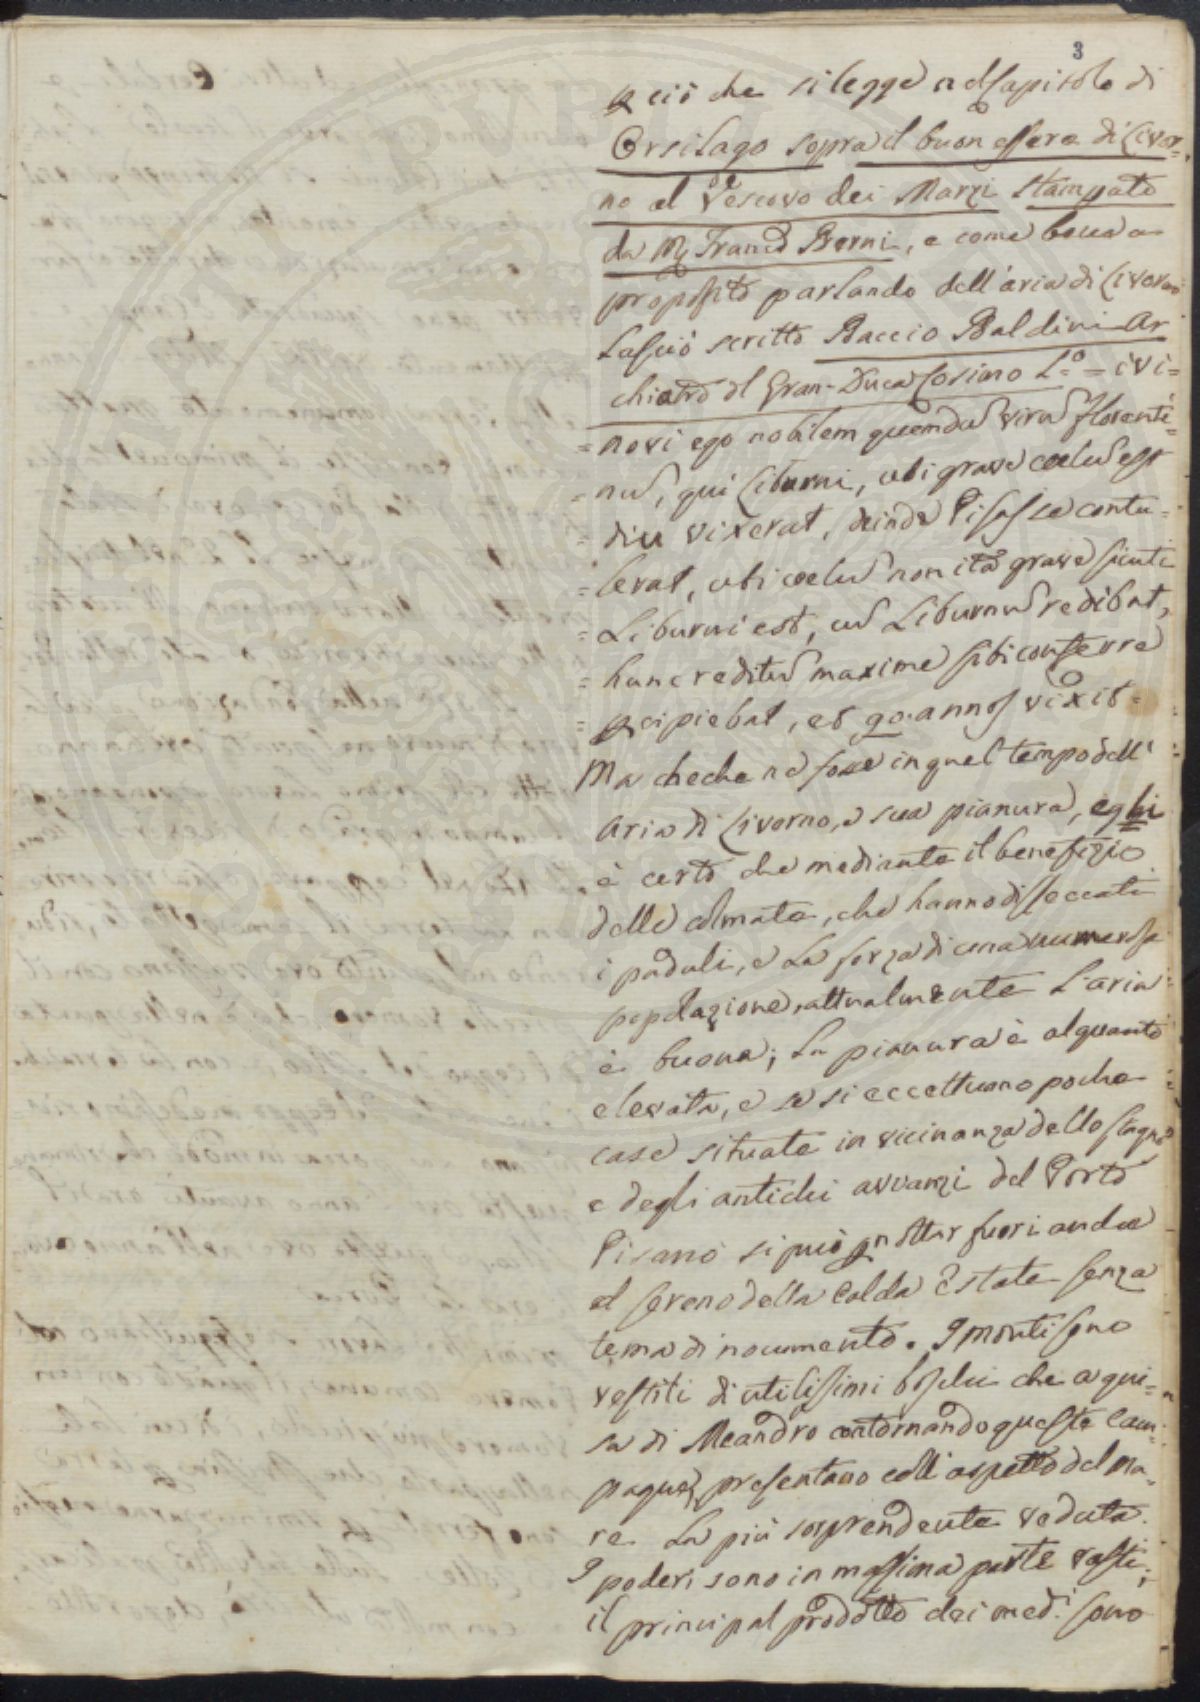 3
p ciò che si legge nel Capitolo di
Orsilago sopra il buon essere di Livor-
no al Vescovo dei Marzi Stampato
da M. Franc.o Berni, e come bene a
proposito parlando dell'aria di Livorno
Lasciò scritto Baccio Baldini Ar
chiatro del Gran-Duca Cosimo I.o = ivi =
= novi ego nobilem quemdam virum florenti=
= num, qui Liburni, ubi grave coelum est
= diu vixerat, deinde Pisas se contu-
= lerat, ubi coelum non ita grave sicuti
= Liburni est, cum Liburnum redibat,
= hunc reditum maxime sibi conferre
= pcipiebat, et 90. annos vixit =
Ma che che ne fosse in quel tempo dell'
aria di Livorno, e sua pianura, egli
è certo che mediante il benefizio
delle colmate, che hanno disseccati
i paduli, e La forza di una numerosa
popolazione, attualmente L'aria
è buona; La pianura è alquanto
elevata, e se si eccettuano poche
case situate in vicinanza dello stagno
e degli antichi avvanzi del Porto
Pisano si può pnottar fuori anche
al sereno della Calda Estate senza
tema di nocumento. I monti sono
vestiti di utilissimi boschi che a gui=
sa di Meandro contornando queste Cam-
pagne, presentano coll'aspetto del Ma-
re La più sorprendente veduta.
I poderi sono in massima parte vasti;
il principal prodotto dei med.i sono